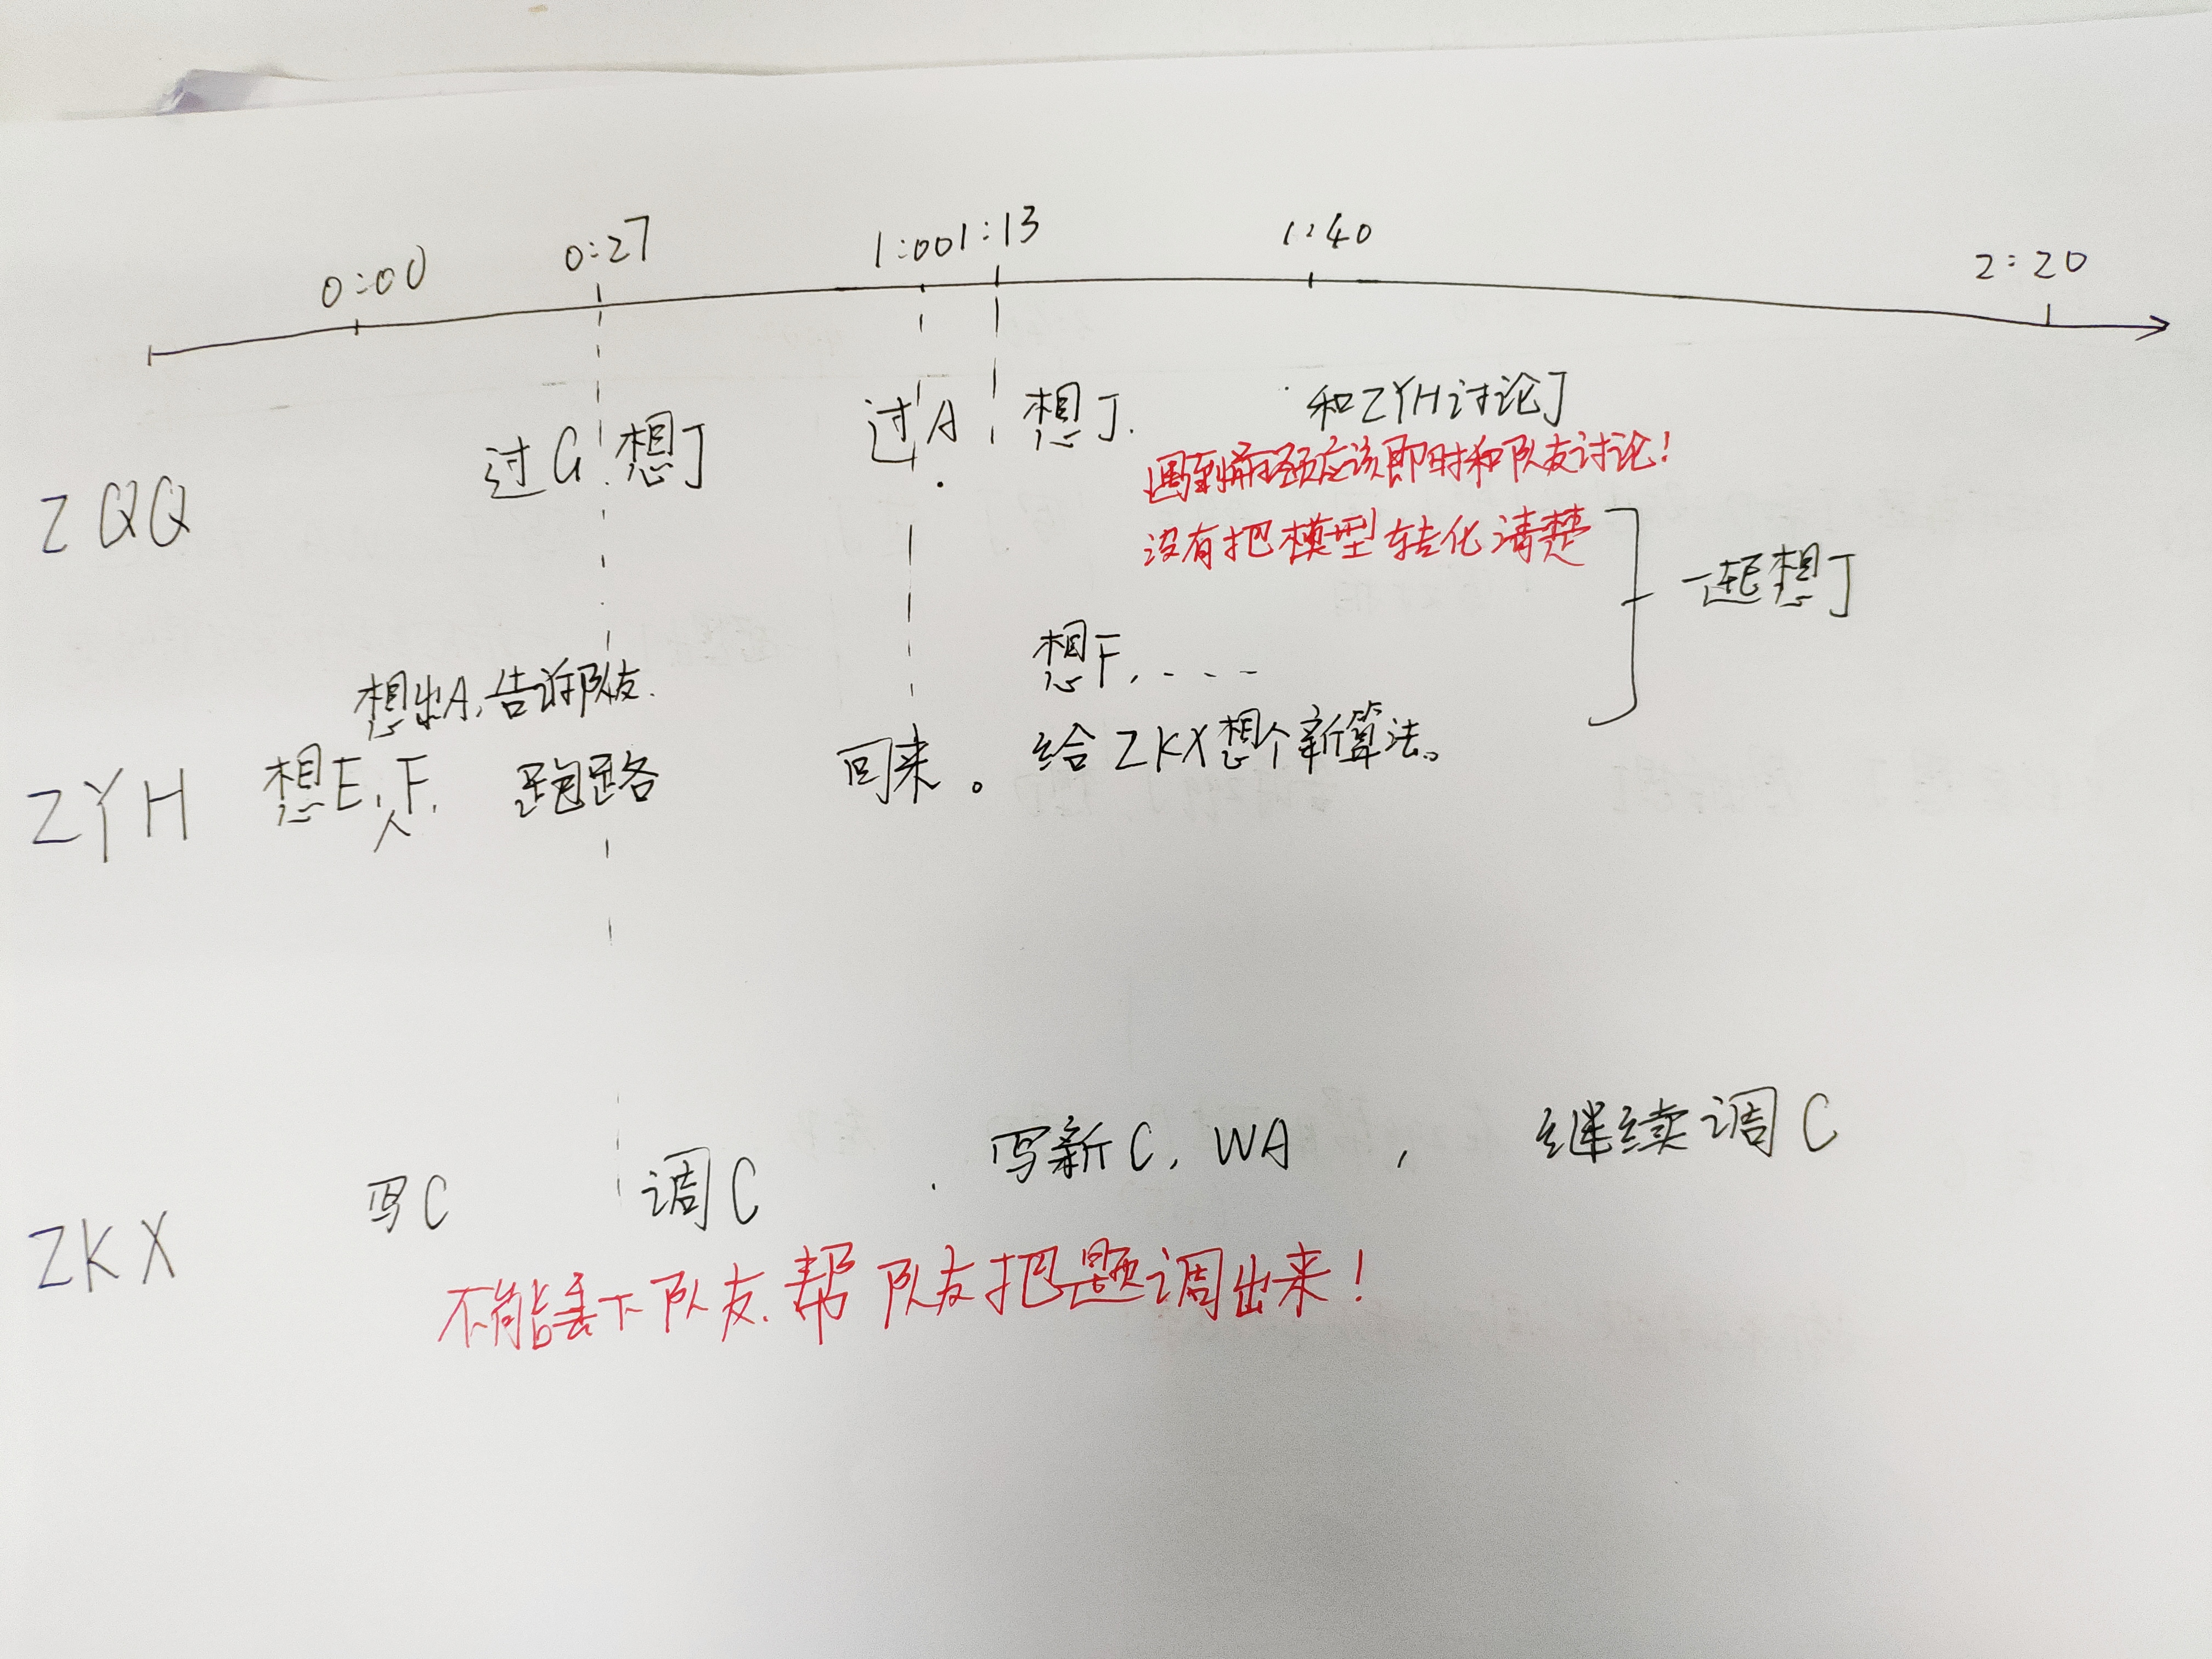 0:00 0:27 1:00 1:13 1:40 2:20
ZQQ 过G 想J 过A 想J. 和ZYH讨论J
遇到瓶颈应该即时和队友讨论!
没有把模型转化清楚
一起想J
想出A,告诉队友.
想F, . . . .
ZYH 想E,F, 跑路 回来。 给ZKX想个新算法。
人
ZKX 写C 调C 写新C, WA , 继续调C
不能丢下队友.帮队友把题调出来!